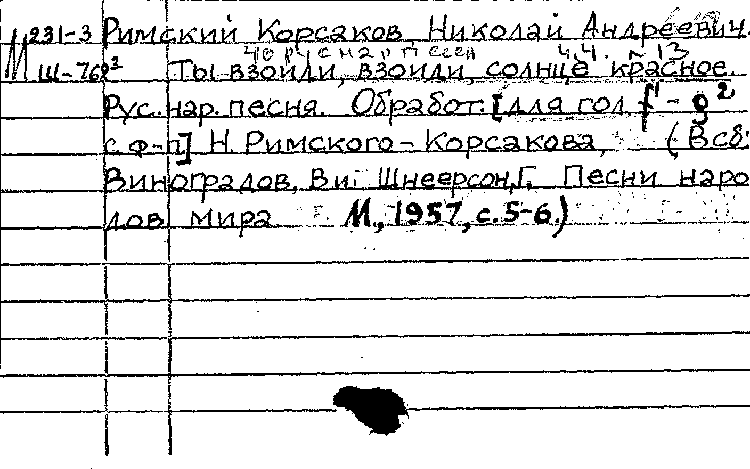 М 231-3 Римский Корсаков Николай Андреевич.
40 рус нар песен ч.1. №13
Ш-769³ Ты взойди, взойди, солнце красное.
Рус. нар. песня. Обработ. [для гол. f¹ - g²
с ф-п] Н. Римского-Корсакова. (В сб:
Виноградов, В и Шнеерсон, Г. Песни наро
дов мира М., 1957, с. 5-6.)